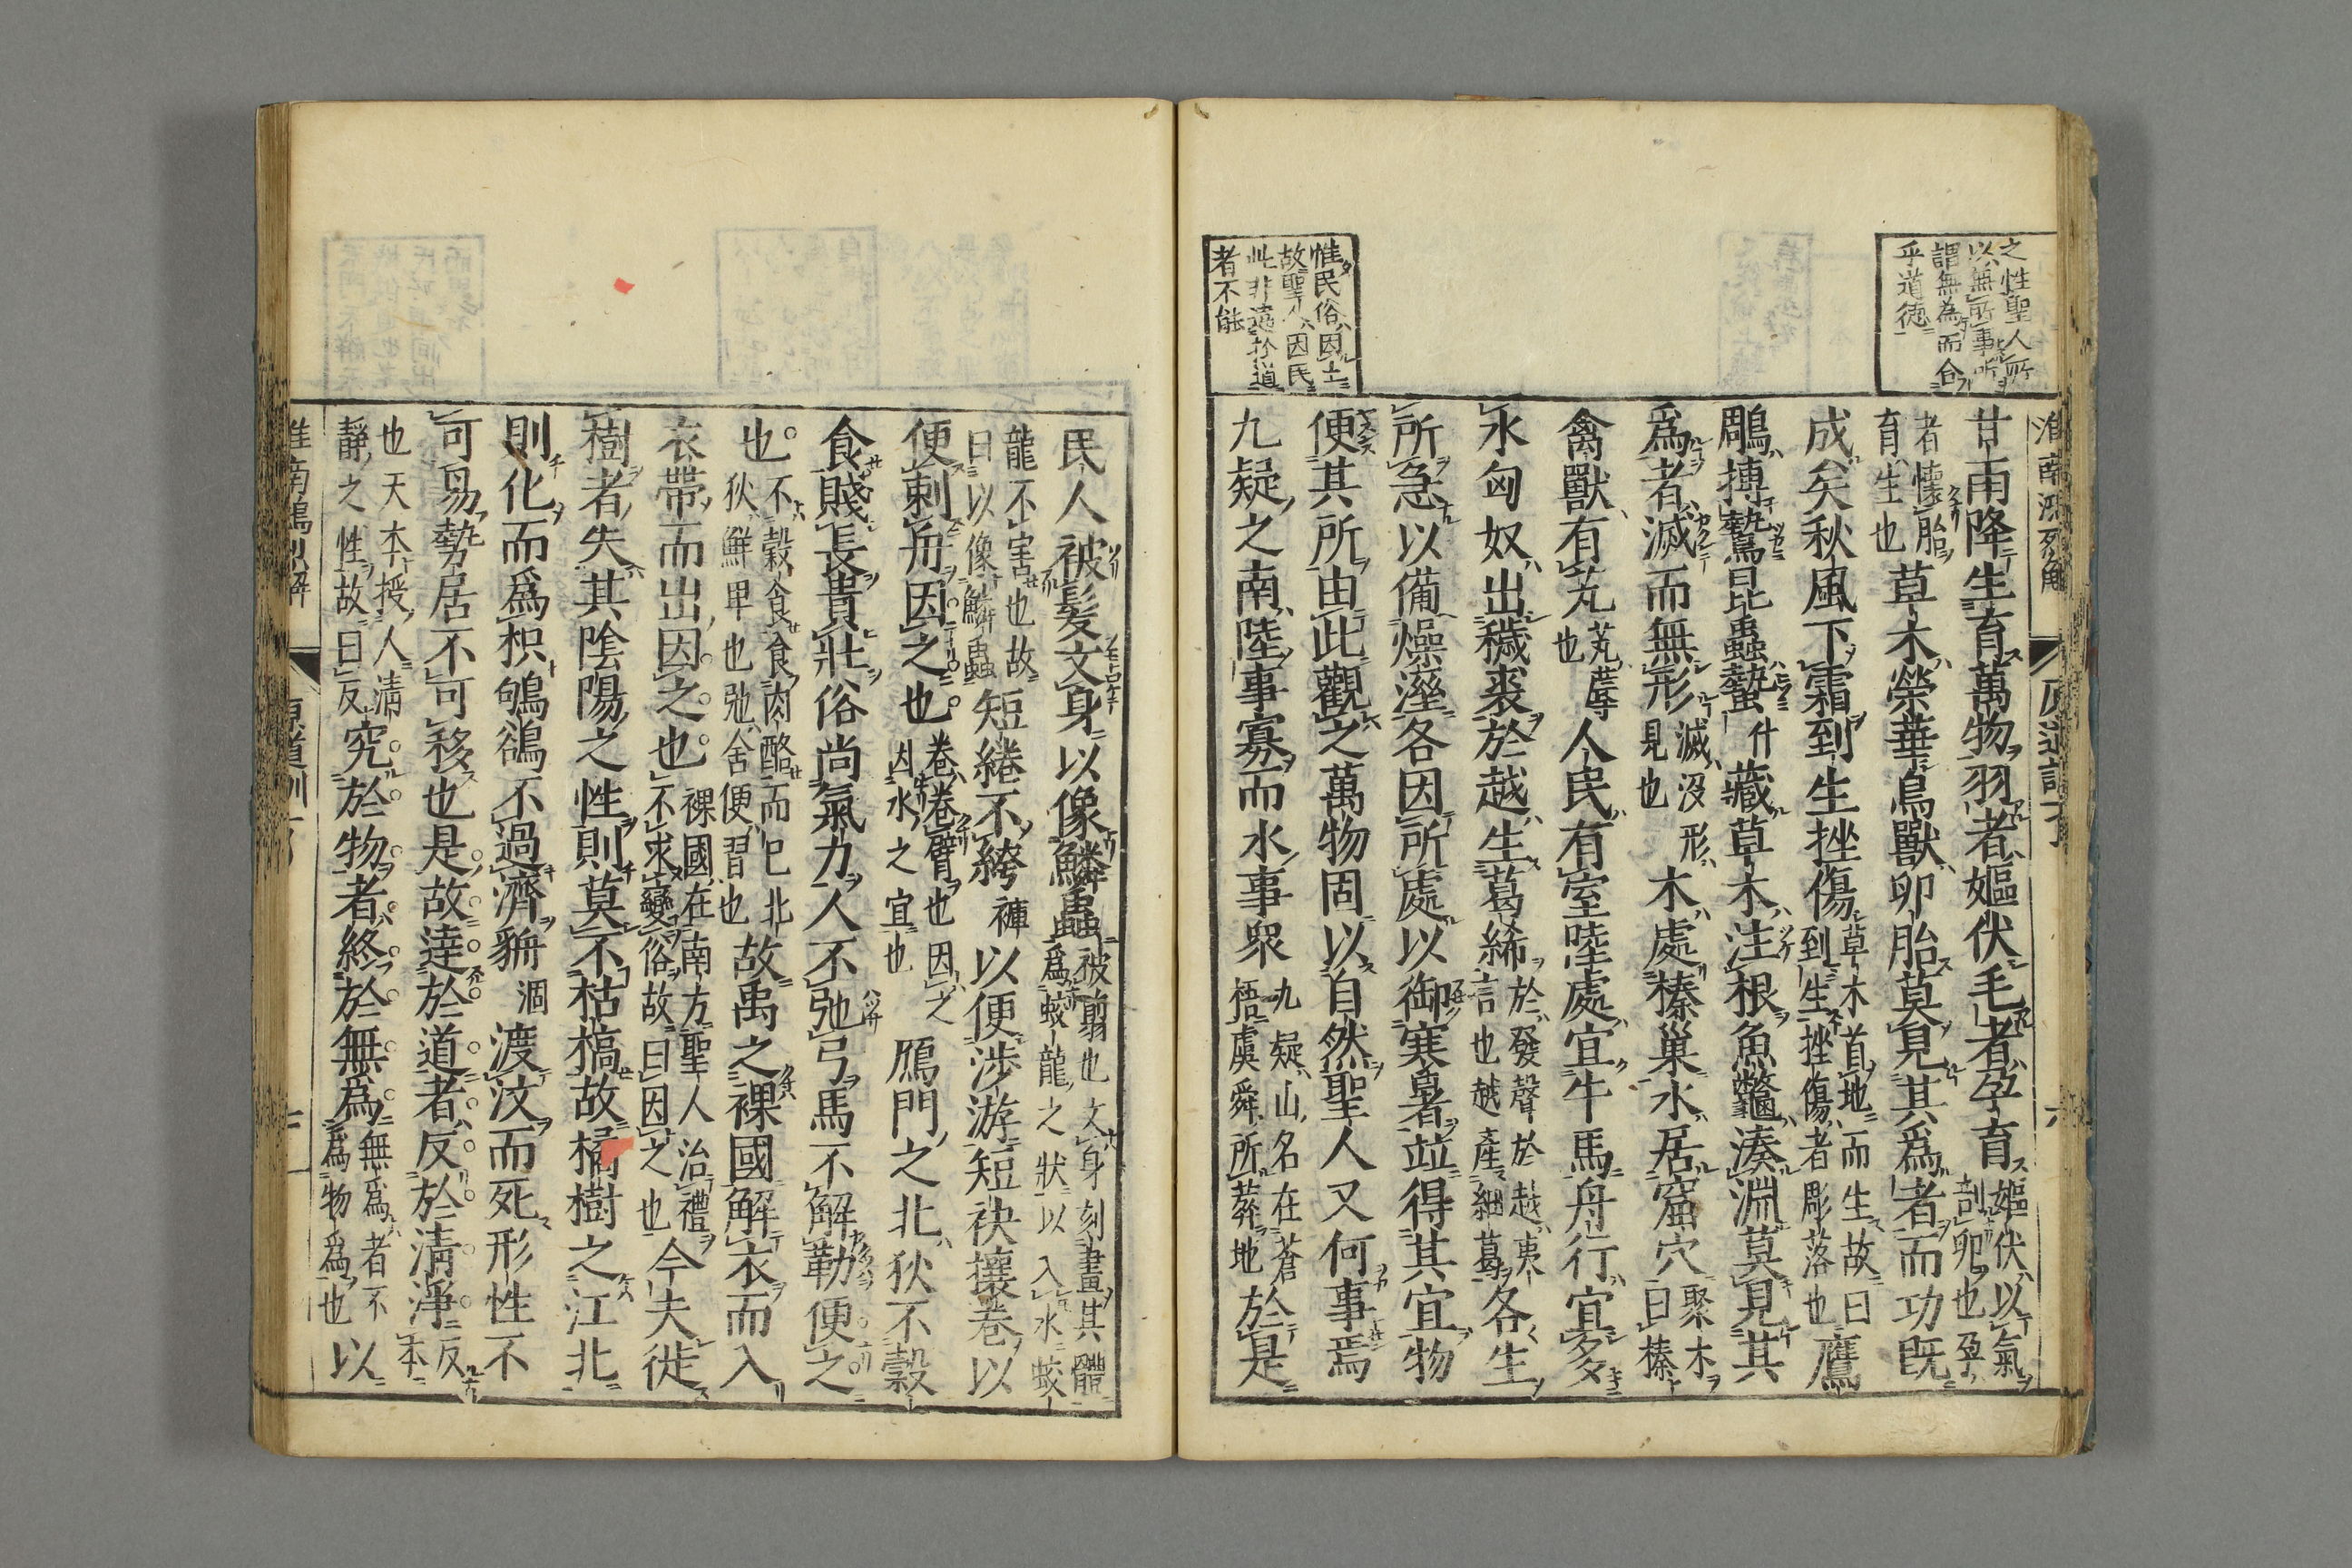 之性聖人所
以無所事所
謂無為而合
乎道德
甘雨降生育萬物羽者嫗伏毛者孕育嫗伏以氣剖卵也孕
者懷胎育生也草木榮華鳥獸卵胎莫見其爲者而功既
成矣秋風下霜到生挫傷草木首地而生故曰到生挫傷者彫落也鷹
鵰搏鷙昆蟲蟄什藏草木注根魚鼈湊淵莫見其
爲者滅而無形滅沒形見也木處榛巢水居窟穴聚木曰榛
禽獸有艽艽蓐也人民有室陸處宜牛馬舟行宜多
水匈奴出穢裘於越生葛絺於發聲於越夷言也越產細葛各生
所急以備燥溼各因所處以御寒暑竝得其宜物
便其所由此觀之萬物固以自然聖人又何事焉
九疑之南陸事寡而水事衆九疑山名在蒼梧虞舜所葬地於是
惟民俗因土
故聖人因民
此非遠於道
者不能
民人被髮文身以像鱗蟲被翦也文身刻畫其體爲蛟龍之狀以入水蛟
龍不害也故曰以像鱗蟲短綣不絝褌以便涉游短袂攘卷以
便剌舟因之也卷卷臂也因之因水之宜也鴈門之北狄不穀
食賤長貴壯俗尚氣力人不弛弓馬不解勒便之
也不穀食食肉酪而已北狄鮮卑也弛舍便習也故禹之裸國解衣而入
衣帶而出因之也裸國在南方聖人治禮不求變俗故曰因之也今夫徙
樹者失其陰陽之性則莫不枯槁故橘樹之江北
則化而爲枳鴝鵒不過濟貈涸渡汶而死形性不
可易勢居不可移也是故達於道者反於清淨反本
也天本授人清靜之性故曰反究於物者終於無為無爲者不爲物爲也以